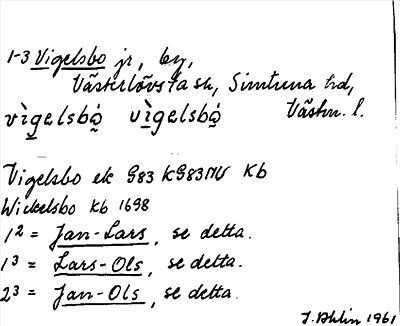 1-3 Vigelsbo jr, by,
Västerlövsta sn, Simtuna hd,
vìgelsbó vìgelsbó Västm. l.
Vigelsbo ek G83 KG83NV Kb
Wickelsbo Kb 1698
1² = Jan-Lars, se detta.
1³ = Lars-Ols, se detta.
2³ = Jan-Ols, se detta.
J. Ahlin 1961